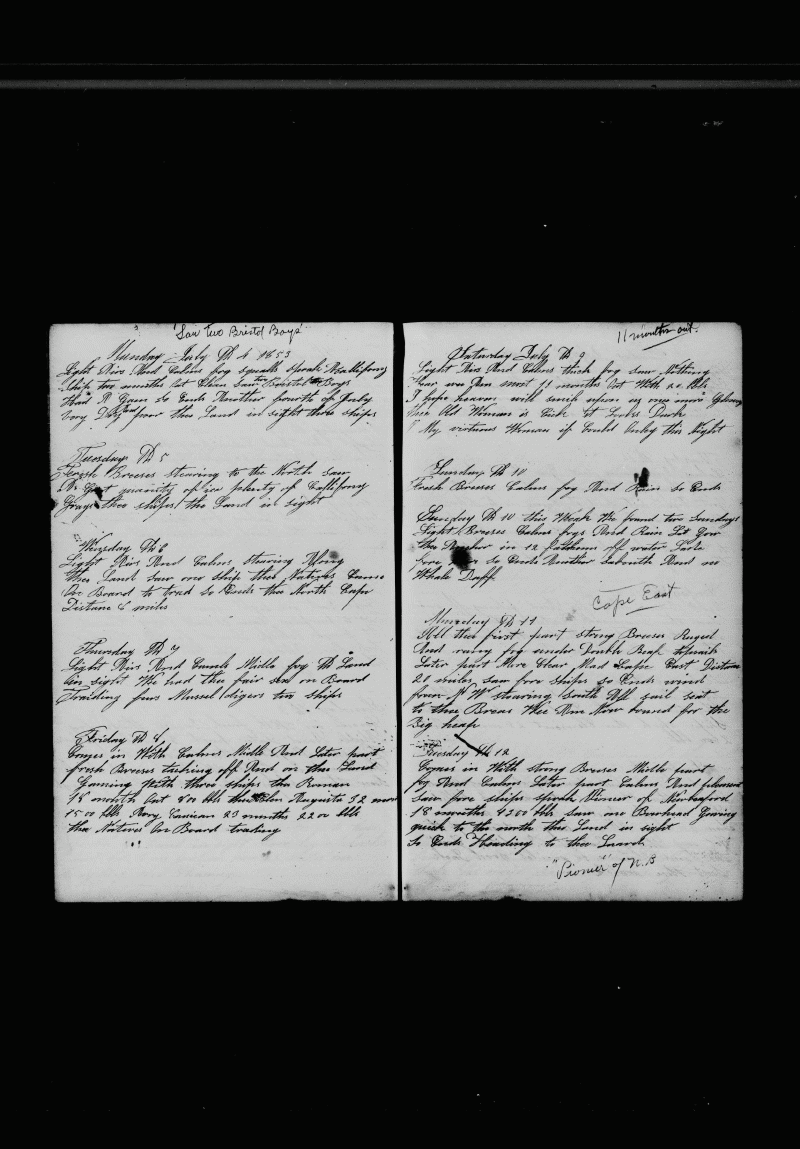 "Saw two Bristol Boys"
Munday July Th 4 1853
Light Airs And Calms fog squalls spoak A
Ship ten months out Clean Saw two Bristol Boys
Had A Gam So Ends Another fourth of July
Very the Land in sight three ships
Tuesday Th 5
Fresh Breeses stearing to the North Saw
A Grat quanity of ice plenty of
Grays thee ships the Land in sight
Wensday Th 6
Light Airs And Calms stearing Along
thee Land Saw one ship thee Natives Came
On Board to trad So Ends the North Cape
Distane 6 miles
Thursday Th 7
Light Airs And Camls Midle fog Th Land
in sight We had the fair sex on Board
Traiding four Mussel digers ten ships
Friday Th 8
Comes in With Calms Midle And Later part
fresh Breeses tacking off And on thee Land
Gaming With three ships the Roman
18 month Out 800 bbls thee Augusta 32 mon
1500 bbls Rory 23 months 2200 bbls
tha Natives On Board trading
11 months out.
Saturday July Th 9
Light Airs And Calms thick fog Saw Nothing
Near 11 months Out With no
I hope heaven will smile upon us one more
thee Old Woman is Sick
My virtuous Woman if Could Only this Night
Sunday Th 10
Fresh Breeses Calms fog And Rain So Ends
Sunday Th 10 this Weak We found two Sundays
Light Breeses Calms fogs And Rain Let Gow
thee Ancher in 12 fathoms off water
five So Ends Another Saboath And no
Whale Duff
Cape East
Munday Th 11
All thee first part strong Breeses Ruged
And rainy fog under Double Reap
Later part More Clear Mad Cape East Distane
20 miles Saw five ships So Ends wind
from N W stearing South All sail set
to thee Breas Wee Am Now bound for the
Big heap
Tuesday Th 12
Comes in With strong Breeses Midle part
fog And Calms Later part Calms And pleasent
Saw five ships spoak Pioneer of Newbedford
18 months 4250 bbls Saw one Bowhead Gowing
quick to the north thee Land in sight
So Ends Heading to thee
"Pionier" of N.B